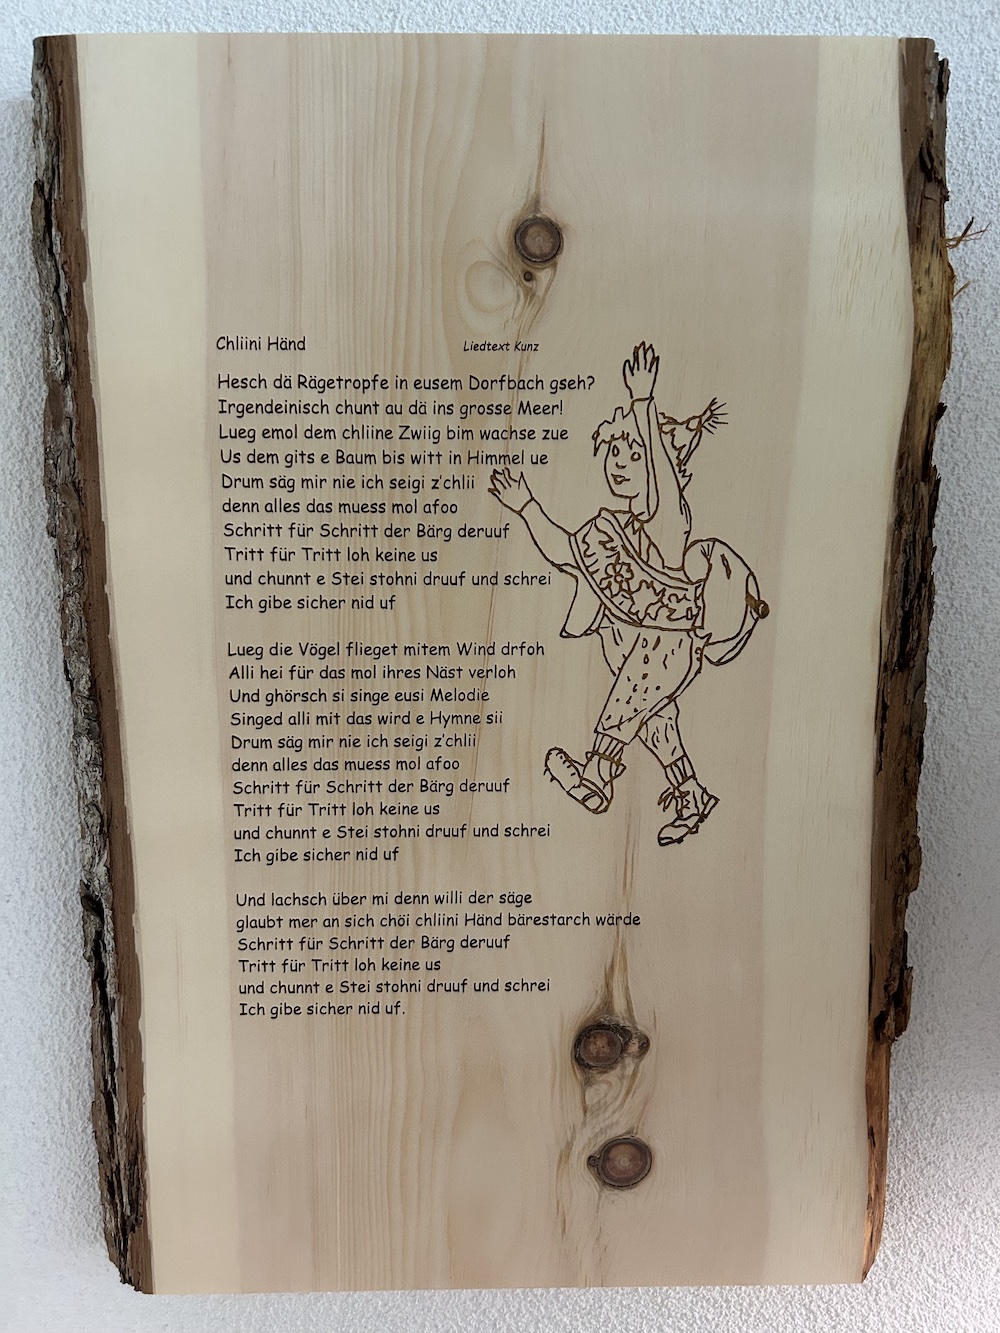 Chliini Händ
Liedtext Kunz
Hesch dä Rägetropfe in eusem Dorfbach gseh?
Irgendeinisch chunt au dä ins grosse Meer!
Lueg emol dem chliine Zwiig bim wachse zue
Us dem gits e Baum bis witt in Himmel ue
Drum säg mir nie ich seigi z'chlii
denn alles das muess mol afoo
Schritt für Schritt der Bärg deruuf
Tritt für Tritt loh keine us
und chunnt e Stei stohni druuf und schrei
Ich gibe sicher nid uf
Lueg die Vögel flieget mitem Wind drfoh
Alli hei für das mol ihres Näst verloh
Und ghörsch si singe eusi Melodie
Singed alli mit das wird e Hymne sii
Drum säg mir nie ich seigi z'chlii
denn alles das muess mol afoo
Schritt für Schritt der Bärg deruuf
Tritt für Tritt loh keine us
und chunnt e Stei stohni druuf und schrei
Ich gibe sicher nid uf
Und lachsch über mi denn willi der säge
glaubt mer an sich chöi chliini Händ bärestarch wärde
Schritt für Schritt der Bärg deruuf
Tritt für Tritt loh keine us
und chunnt e Stei stohni druuf und schrei
Ich gibe sicher nid uf.